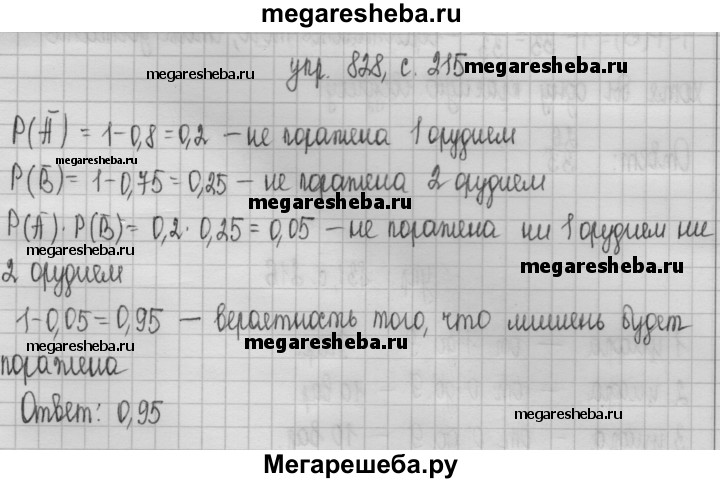 megaresheba.ru
упр. 828, с. 215 megaresheba.ru
megaresheba.ru
P(Ā) = 1-0,8=0,2 – не поражена 1 орудием
megaresheba.ru
P(B̄)= 1-0,75=0,25 – не поражена 2 орудием
megaresheba.ru
P(Ā)·P(B̄)= 0,2·0,25=0,05 – не поражена ни 1 орудием ни
megaresheba.ru
megaresheba.ru
2 орудием
1-0,05=0,95 – вероятность того, что мишень будет
megaresheba.ru
megaresheba.ru
поражена
Ответ: 0,95
megaresheba.ru
Мегарешеба.ру